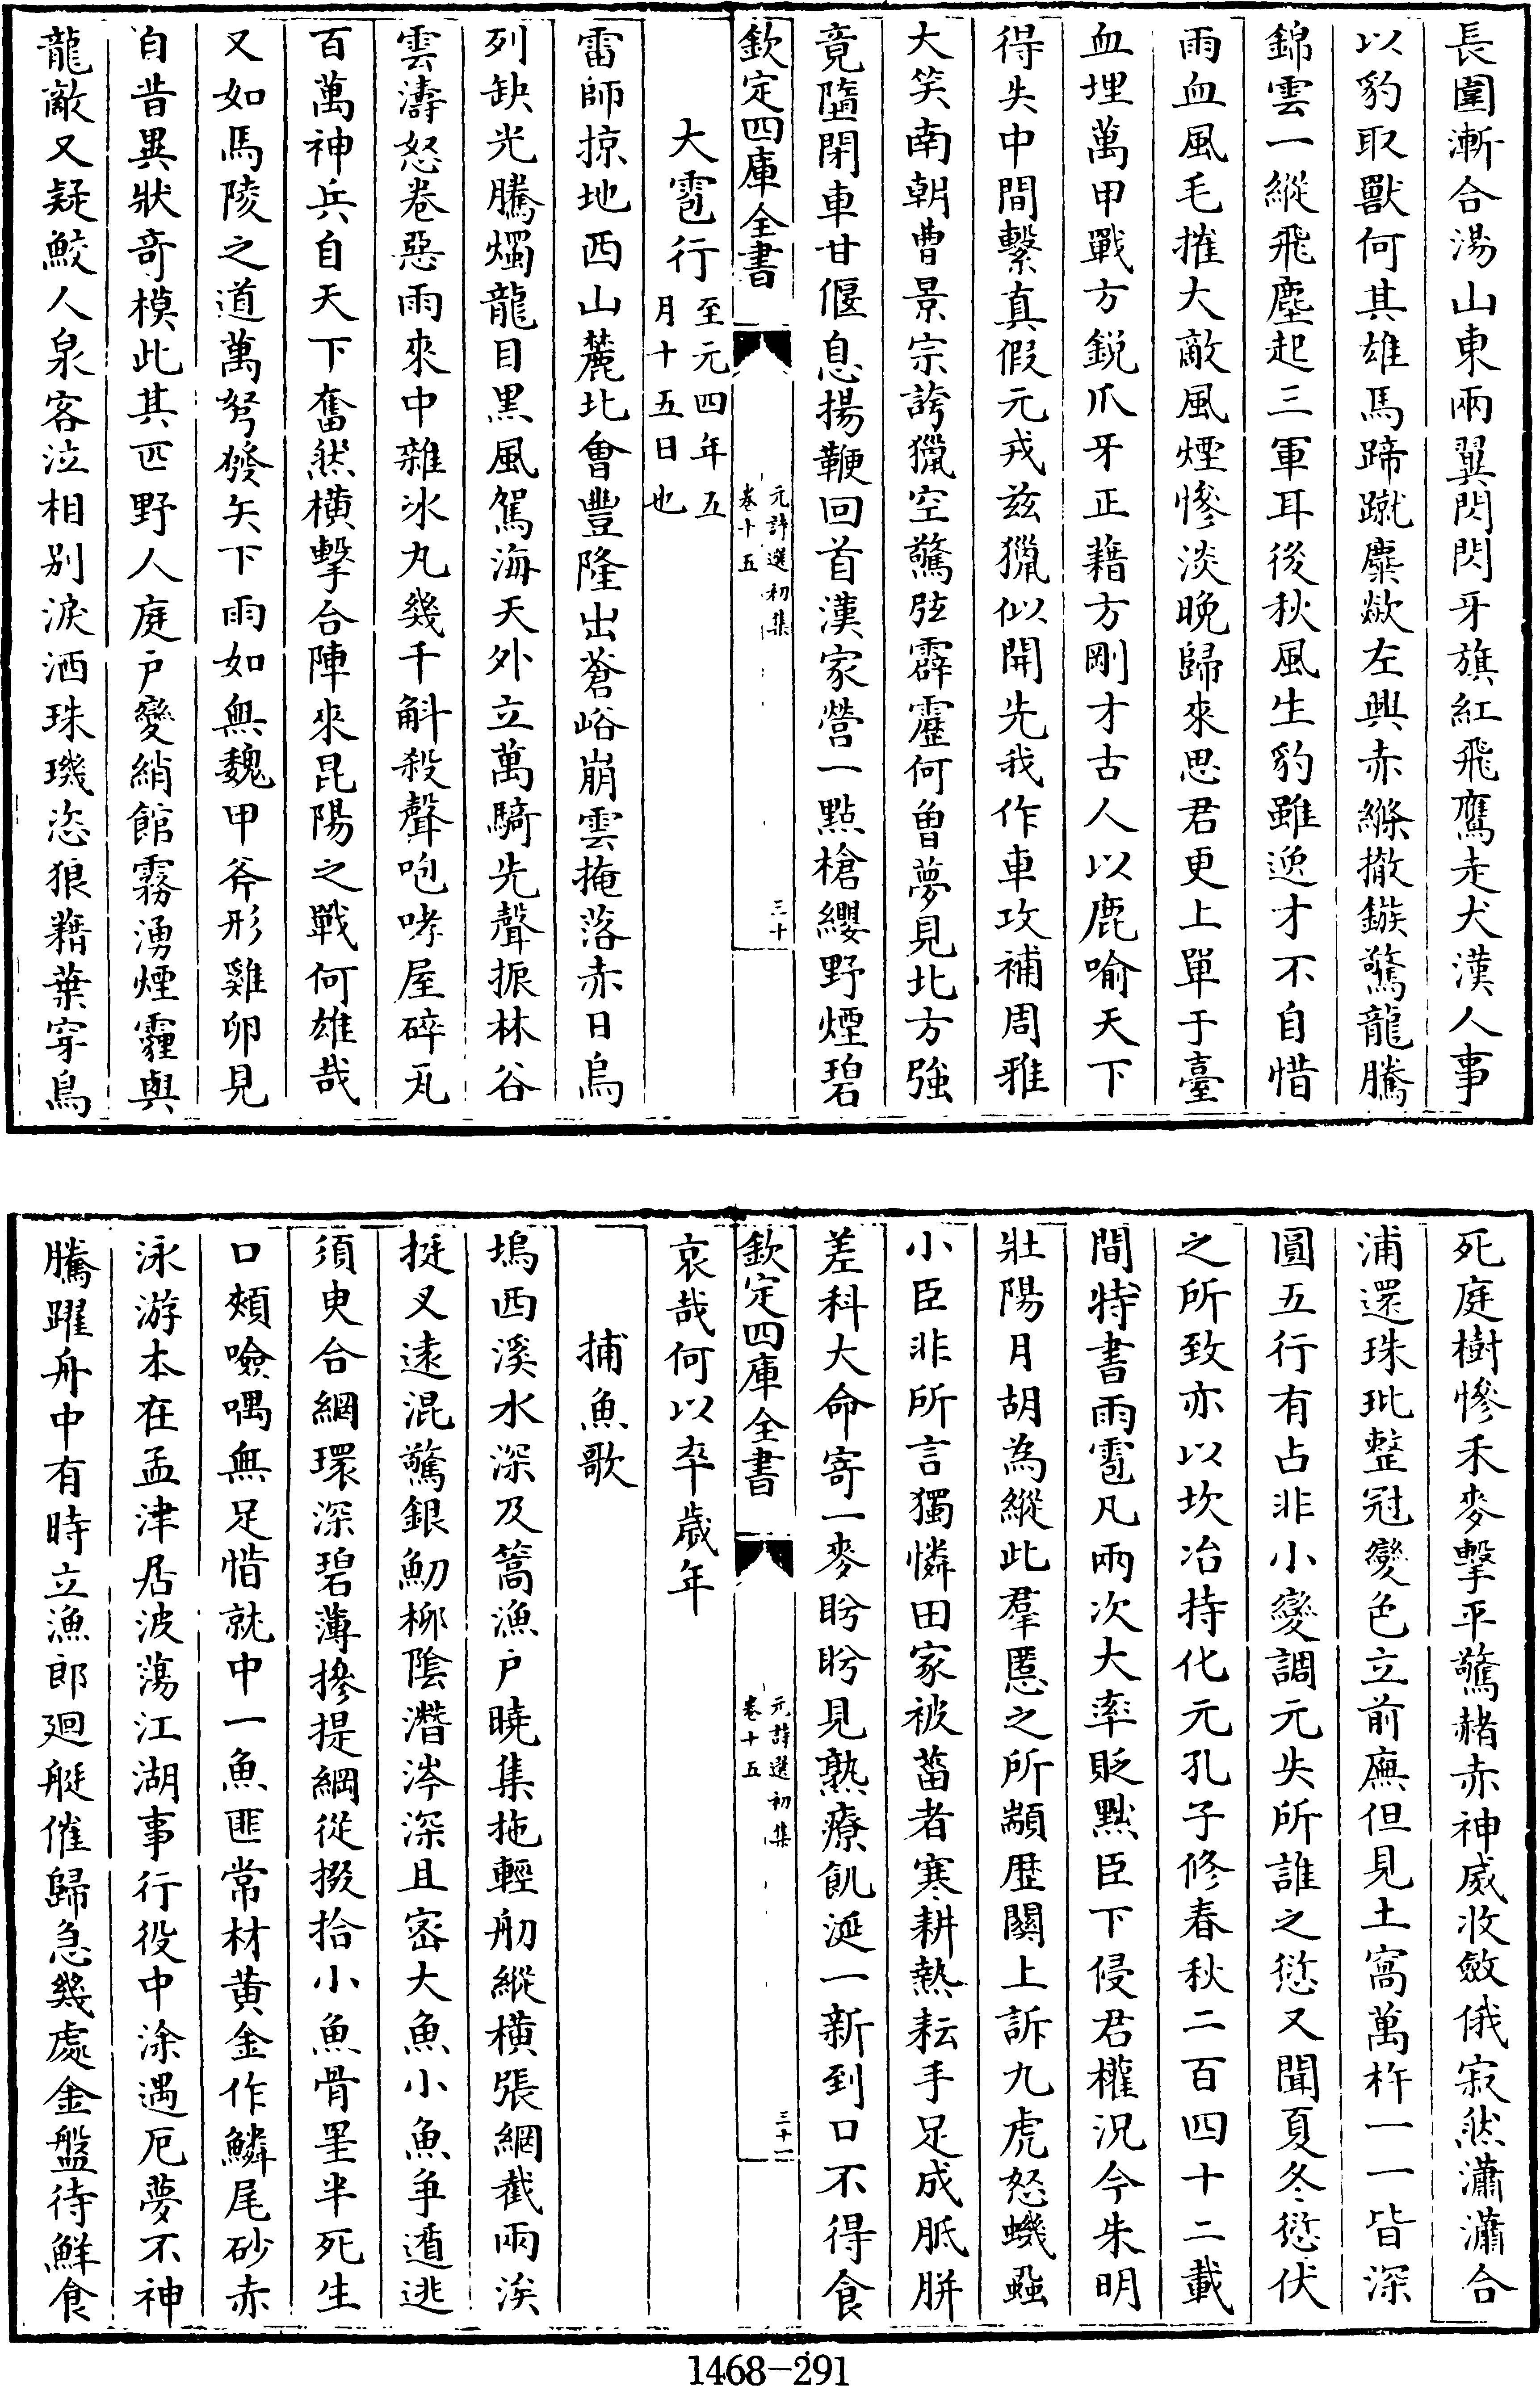 長圍漸合湯山東兩翼閃閃牙旗紅飛鷹走犬漢人事
以豹取獸何其雄馬蹄蹴麋歘左興赤縧撤鏃驚龍騰
錦雲一縱飛塵起三軍耳後秋風生豹雖逸才不自惜
雨血風毛摧大敵風煙慘淡晚歸來思君更上單于臺
血埋萬甲戰方銳爪牙正藉方剛才古人以鹿喻天下
得失中間繫真假元戎兹獵似開先我作車攻補周雅
大笑南朝曹景宗誇獵空驚弦霹靂何曾夢見北方強
竟墮閉車甘偃息揚鞭回首漢家營一點槍纓野煙碧
欽定四庫全書
元詩選初集
卷十五
三十
大雹行至元四年五
月十五日也
雷師掠地西山麓北會豐隆出蒼峪崩雲掩落赤日烏
列缺光騰燭龍目黒風駕海天外立萬騎先聲振林谷
雲濤怒卷惡雨來中雜冰丸幾千斛殺聲咆哮屋碎瓦
百萬神兵自天下奮然橫擊合陣來昆陽之戰何雄哉
又如馬陵之道萬弩發矢下雨如無魏甲斧形雞卵見
自昔異狀奇模此其匹野人庭户變綃館霧湧煙霾與
龍敵又疑鮫人泉客泣相别淚洒珠璣恣狼藉葉穿鳥
死庭樹慘禾麥擊平驚赭赤神威收斂俄寂然瀟瀟合
浦還珠玭整冠變色立前廡但見土窩萬杵一一皆深
圓五行有占非小變調元失所誰之愆又聞夏冬愆伏
之所致亦以坎冶持化元孔子修春秋二百四十二載
間特書雨雹凡兩次大率貶黙臣下侵君權況今朱明
壯陽月胡為縱此羣慝之所顓歴闗上訴九虎怒蟣蝨
小臣非所言獨憐田家被菑者寒耕熱耘手足成胝胼
差科大命寄一麥盻盻見熟療飢涎一新到口不得食
欽定四庫全書
元詩選初集
卷十五
三十一
哀哉何以卒歲年
捕魚歌
塢西溪水深及篙漁户曉集拖輕舠縱橫張網截兩涘
挺叉逺混驚銀魛柳陰潛涔深且宻大魚小魚爭遁逃
須臾合網環深碧薄摻提綱從掇拾小魚骨畢半死生
口頰噞喁無足惜就中一魚匪常材黄金作鱗尾砂赤
泳游本在孟津居波蕩江湖事行役中涂遇厄夢不神
騰躍舟中有時立漁郎廻艇催歸急幾處金盤待鮮食
1468-291